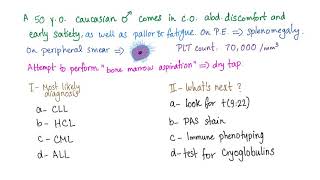 A 50 y.o. caucasian ♂ comes in c.o. abd. discomfort and
early satiety, as well as pallor & fatigue. On P.E ⇒ splenomegaly.
On peripheral smear ⇒ PLT count. 70,000 /mm³
Attempt to perform "bone marrow aspiration" ⇒ dry tap
I - Most likely diagnosis
a- CLL
b- HCL
c- CML
d- ALL
II - What's next ?
a- look for t(9;22)
b- PAS stain
c- Immune phenotyping
d- test for Cryoglobulins